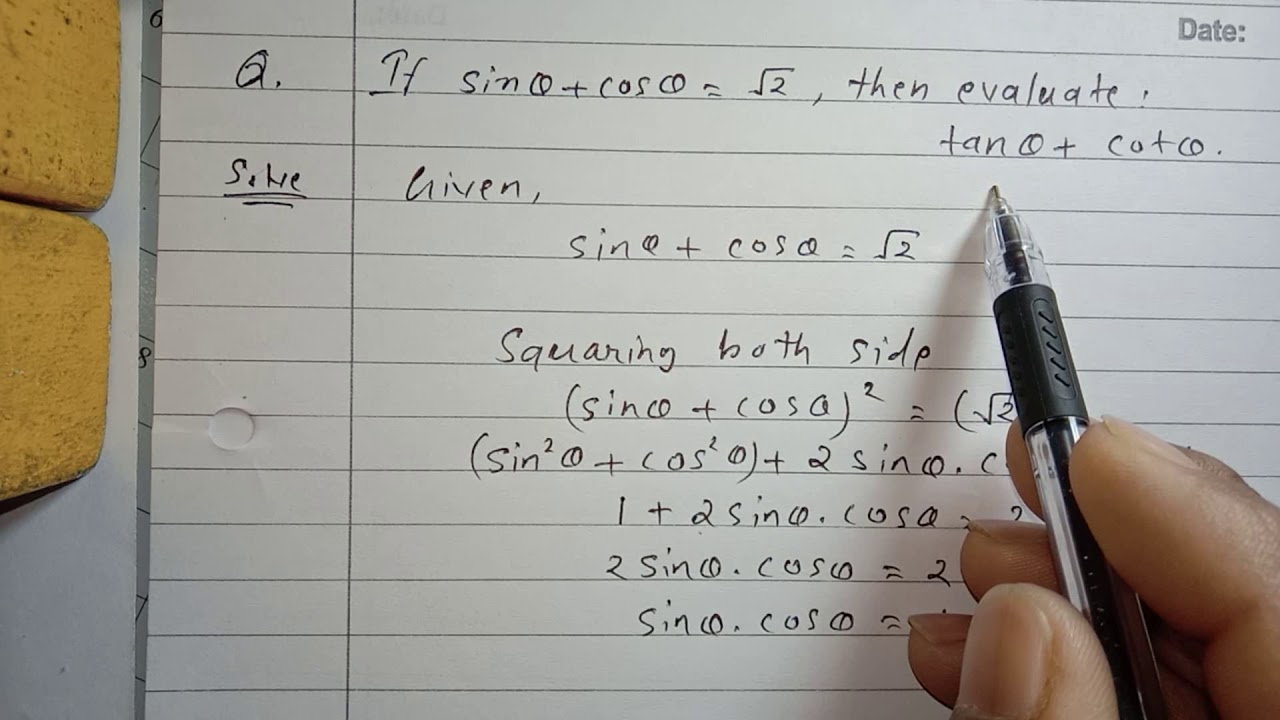 Date:
Q. If sinθ + cosθ = √2, then evaluate:
tanθ + cotθ.
Solve Given,
sinθ + cosθ = √2
Squaring both side
(sinθ + cosθ)² = (√2
(sin²θ + cos²θ) + 2 sinθ. c
1 + 2 sinθ. cosθ =
2 sinθ. cosθ = 2
sinθ. cosθ =